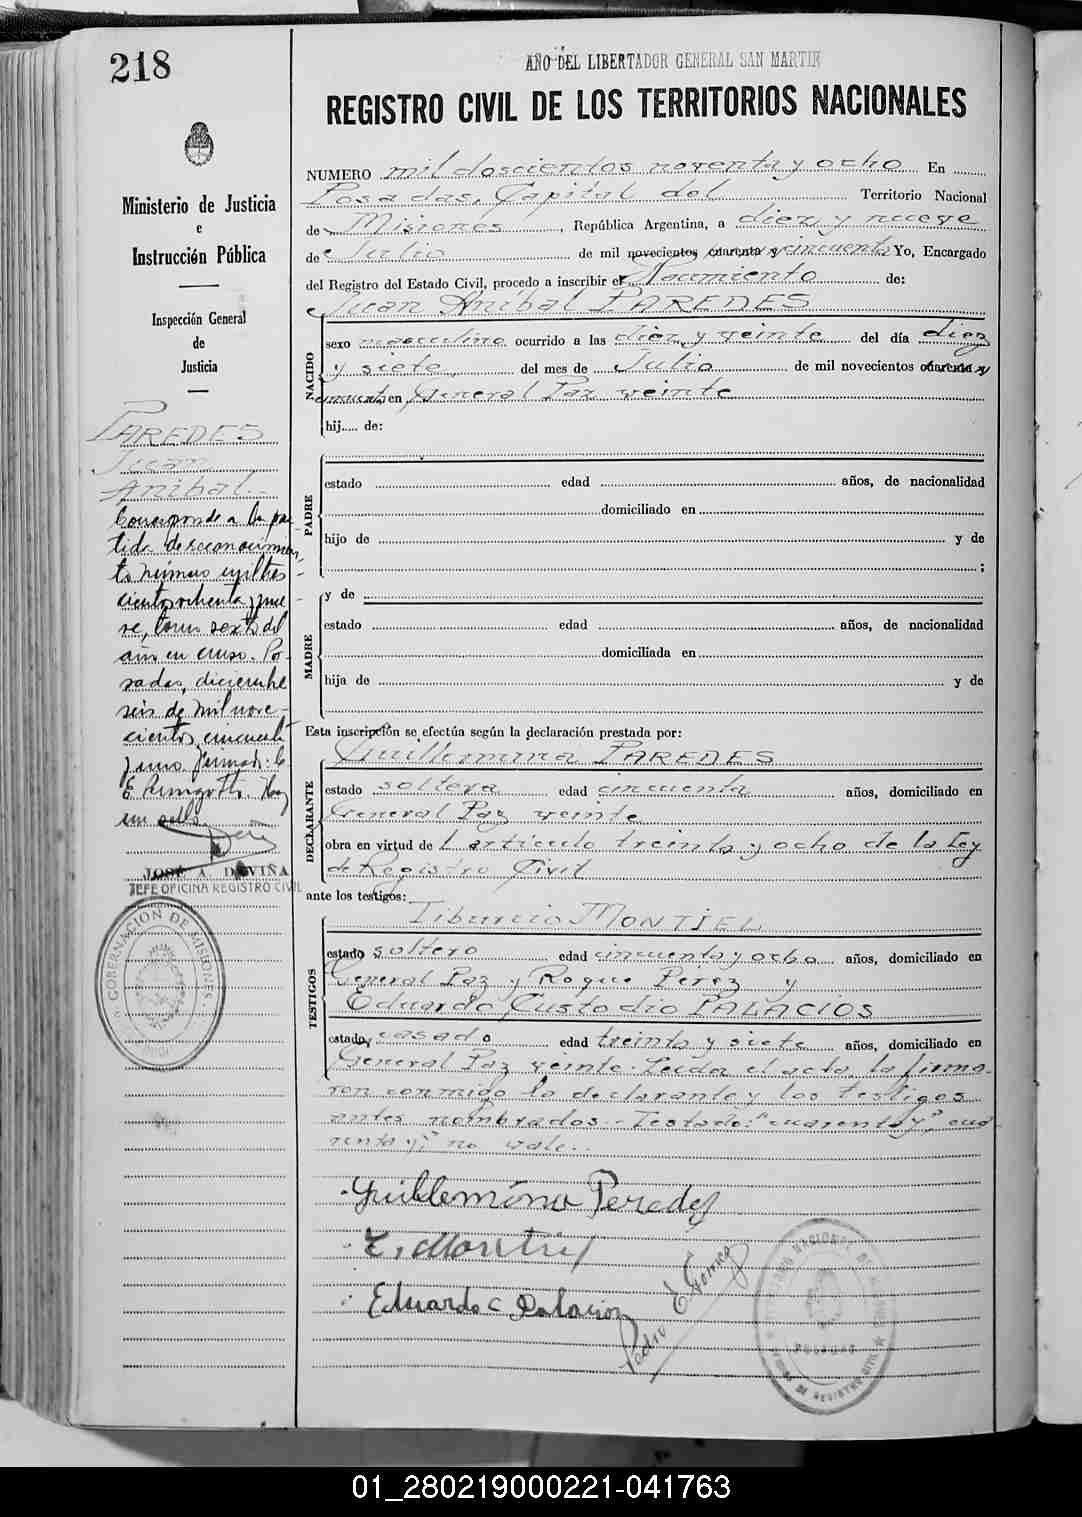 218
AÑO DEL LIBERTADOR GENERAL SAN MARTIN
REGISTRO CIVIL DE LOS TERRITORIOS NACIONALES
Ministerio de Justicia
e
Instrucción Pública
Inspección General
de
Justicia
PAREDES
Juan
Anibal
Corresponde a la par
tida de reconocimien
to número mil tres
cientos ochenta y nue
ve, tomo sexto del
año en curso. Po-
sadas, diciembre
seis de mil nove-
cientos cincuenta
y uno. Firmado:
E. Hay
un sello.
JOSÉ A. DAVIÑA
JEFE OFICINA REGISTRO CIVIL
GOBERNACION DE MISIONES
NUMERO mil doscientos noventa y ocho En
Posadas, Capital del Territorio Nacional
de Misiones, República Argentina, a diez y nueve
de Julio de mil novecientos cuarenta y cincuenta Yo, Encargado
del Registro del Estado Civil, procedo a inscribir el Nacimiento de:
Juan Aníbal PAREDES
NACIDO
sexo masculino ocurrido a las diez y veinte del día diez
y siete del mes de Julio de mil novecientos cuarenta y
cincuenta en General Paz veinte
hij..... de:
PADRE
estado edad años, de nacionalidad
domiciliado en
hijo de y de
;
MADRE
y de
estado edad años, de nacionalidad
domiciliada en
hija de y de
Esta inscripción se efectúa según la declaración prestada por:
Guillermina PAREDES
DECLARANTE
estado soltera edad cincuenta años, domiciliado en
General Paz veinte
obra en virtud de l artículo treinta y ocho de la Ley
de Registro Civil
ante los testigos:
Tiburcio MONTIEL
TESTIGOS
estado soltero edad cincuenta y ocho años, domiciliado en
General Paz y Roque Perez y
Eduardo Custodio PALACIOS
estado casado edad treinta y siete años, domiciliado en
General Paz veinte. Leida el acta, la firma-
ron conmigo la declarante y los testigos
antes nombrados.- Testado: "cuarenta y", cua
renta y" no vale.-
Guillemina Peredes
T. Montiel
Eduardo C Palacios
Pedro E. Gomez
POSADAS
01_280219000221-041763